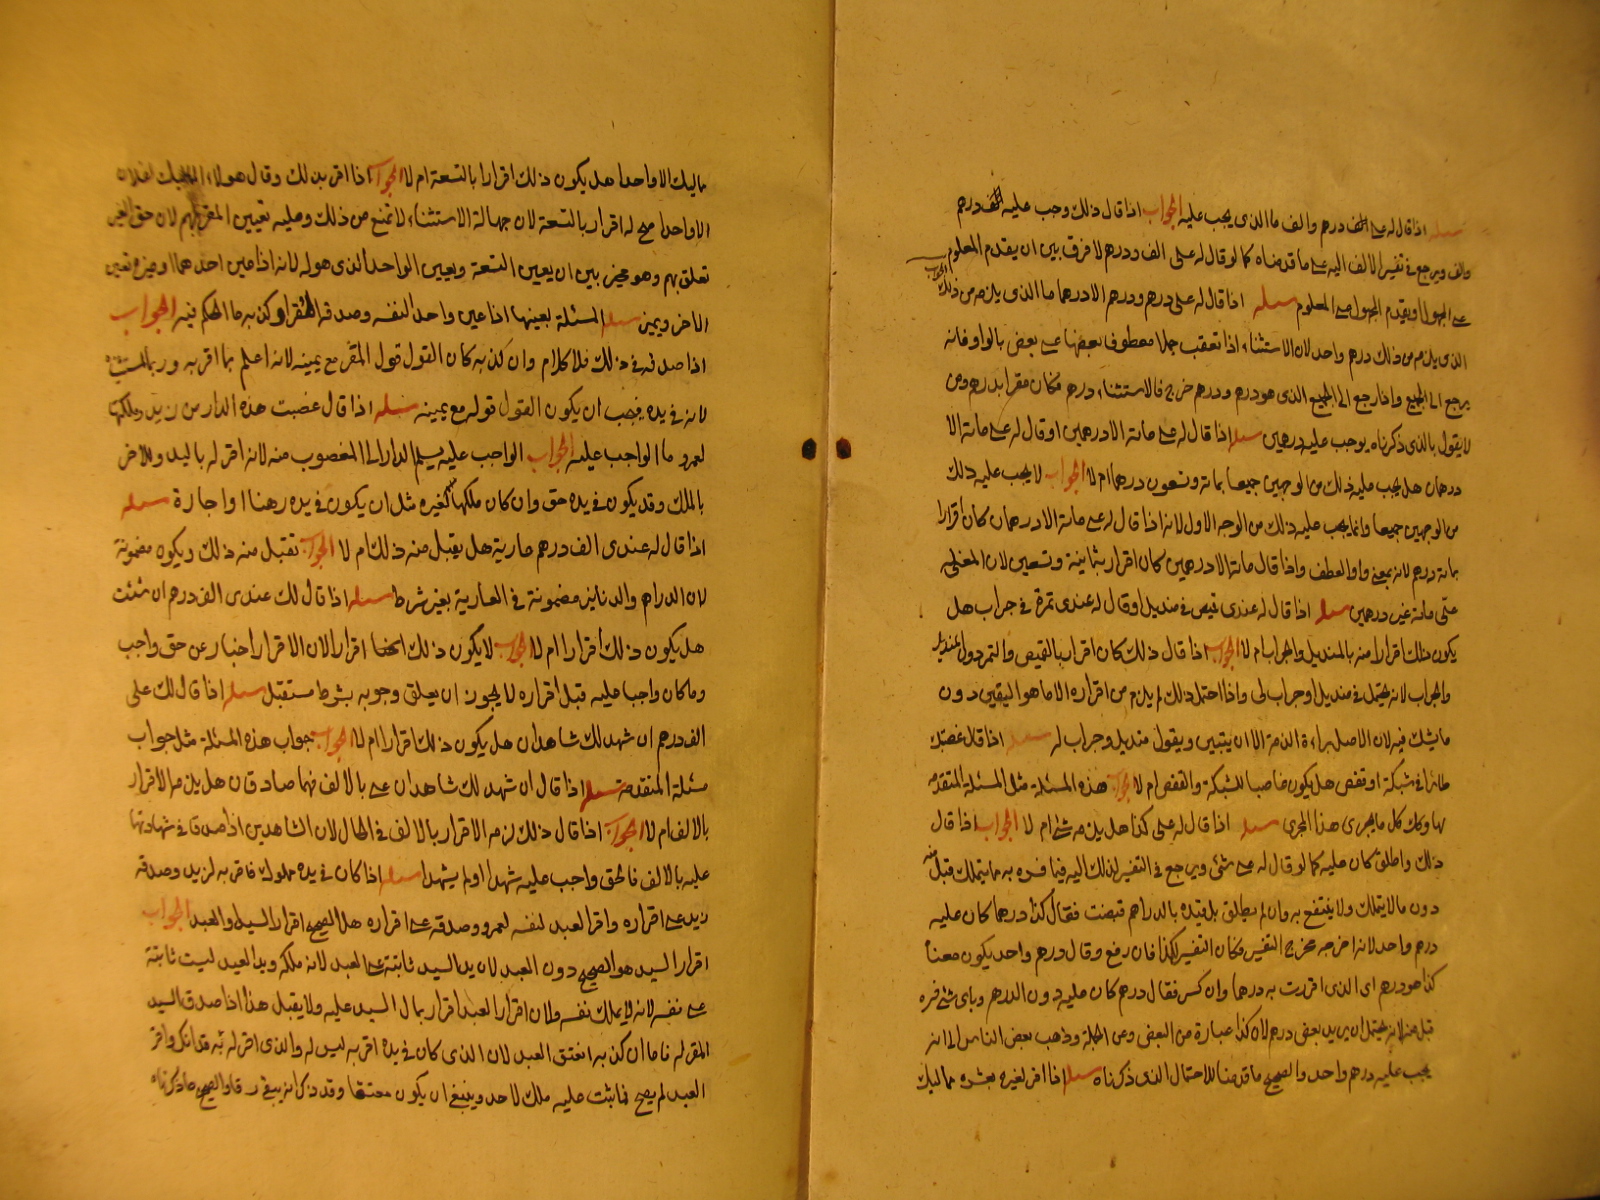 مسئلة اذا قال له على الف درهم والف ما الذى يجب عليه الجواب اذا قال ذلك وجب عليه الف درهم
والف ويرجع فى تفسير الالف اليه على ما قدمناه كما لو قال له على الف ودرهم لا فرق بين ان يقدم المعلوم
على المجهول او يقدم المجهول على المعلوم مسئلة اذا قال له على درهم ودرهم الا درهما ما الذى يلزمه من ذلك الجواب
الذى يلزمه من ذلك درهم واحد لان الاستثناء اذا تعقب جملا معطوف بعضها على بعض بالواو فانه
يرجع الى الجميع واذا رجع الى الجميع الذى هو درهم ودرهم خرج فالاستثناء درهم فكان مقرا بدرهم ومن
لا يقول بالذى ذكرناه يوجب عليه درهمين مسئلة اذا قال له على مائة الا درهمين او قال له على مائة الا
درهمان هل يجب عليه ذلك من الوجهين جميعا بمائة وتسعون درهما ام لا الجواب لا يجب عليه ذلك
من الوجهين جميعا وانما يجب عليه ذلك من الوجه الاول لانه اذا قال له على مائة الا درهمان كان اقرارا
بمائة درهم لانه بمعنى واو العطف واذا قال مائة الا درهمين كان اقرار بثمانية وتسعين لان المعنى له
على مائة غير درهمين مسئلة اذا قال له عندى قميص فى منديل او قال له عندى تمرة فى جراب هل
يكون ذلك اقرارا منه بالمنديل والجراب ام لا الجواب اذا قال ذلك كان اقرار بالقميص والتمر دون المنديل
والجراب لانه يحتمل فى منديل او جراب لى واذا احتمل ذلك لم يلزم من اقراره الا ما هو اليقين دون
ما يشك فيه لان الاصل براءة الذمة الا ان يتبين ويقول منديل وجراب له مسئلة اذا قال غصبتك
طائرا فى شبكة او قفص هل يكون غاصبا للشبكة والقفص ام لا الجواب هذه المسئلة مثل المسئلة المتقدمة
لها وكك كل ما يجرى هذا المجرى مسئلة اذا قال له على كذا هل يلزمه شئ ام لا الجواب اذا قال
ذلك واطلق كان عليه كما لو قال له على شئ ويرجع فى التفسير لذلك اليه فيما فسره به مما يتملك قبل منه
دون ما لا يتملك ولا ينتفع به وان لم يطلق بل قيده بالدراهم فنصبت فقال كذا درهما كان عليه
درهم واحد لانه اخرجه مخرج التفسير فكان التفسير لكذا فان رفع وقال درهم واحد يكون معناه
كذا هو درهم اى الذى اقررت به درهما وان كسر فقال درهم كان عليه دون الدرهم وباى شئ فسره
قبل منه لانه يحتمل ان يريد بعض درهم لان كذا عبارة من البعض وعن الجملة وذهب بعض الناس الى انه
يجب عليه درهم واحد والصحيح ما قدمنا للاحتمال الذى ذكرناه مسئلة اذا اقر لغيره بعشرة مماليك
مماليك الا واحدا هل يكون ذلك اقرارا بالتسعة ام لا الجواب اذا اقر بذلك وقال هولاء المماليك لفلان
الا واحدا صح له اقرار بالتسعة لان جهالة الاستثناء لا تمنع من ذلك وعليه تعيين المقر بهم لان حق الغير
تعلق بهم وهو مخير بين ان يعين التسعة ويعين الواحد الذى هو له لانه اذا عين احدهما او ميزه تعين
الاخر ويميز مسئلة المسئلة بعينها اذا عين واحد لنفسه وصدقه المقر له او كذبه ما الحكم فيه الجواب
اذا صدقه فى ذلك فلا كلام وان كذبه كان القول قول المقر مع يمينه لانه اعلم بما اقر به
لانه فى يده فيجب ان يكون القول قوله مع يمينه مسئلة اذا قال غصبت هذه الدار من زيد وملكها
لعمرو ما الواجب عليه الجواب الواجب عليه تسليم الدار الى المغصوب منه لانه اقر له باليد وللاخر
بالملك وقد يكون فى يده حق وان كان ملكها لغيره مثل ان يكون فى يده رهنا او اجارة مسئلة
اذا قال له عندى الف درهم عارية هل يقبل منه ذلك ام لا الجواب تقبل منه ذلك ويكون مضمونة
لان الدراهم والدنانير مضمونة فى العارية بغير شرط مسئلة اذا قال لك عندى الف درهم ان شئت
هل يكون ذلك اقرارا ام لا الجواب لا يكون ذلك اقرارا لان الاقرار اخبار عن حق واجب
وما كان واجبا عليه قبل اقراره لا يجوز ان يعلق وجوبه بشرط مستقبل مسئلة اذا قال لك على
الف درهم ان شهد لك شاهدان هل يكون ذلك اقرارا ام لا الجواب جواب هذه المسئلة مثل جواب
مسئلة المتقدمة مسئلة اذا قال ان شهد لك شاهدان على بالالف فهما صادقان هل يلزمه الاقرار
بالالف ام لا الجواب اذا قال ذلك لزمه الاقرار بالالف فى الحال لان الشاهدين اذا صدقا فى شهادتهما
عليه بالالف فالحق واجب عليه شهدا او لم يشهدا مسئلة اذا كان فى يده مملوك فاقر به لزيد وصدقه
زيد على اقراره واقر العبد لنفسه لعمرو وصدقه على اقراره هل الصحيح اقرار السيد او العبد الجواب
اقرار السيد هو الصحيح دون العبد لان يد السيد ثابتة على العبد لانه ملكه ويد العبد ليست ثابتة
على نفسه لانه لا يملك نفسه ولان اقرار العبد اقرار بمال السيد عليه ولا يقبل هذا اذا صدق السيد
المقر له فاما ان كذبه انعتق العبد لان الذى كان فى يده اقر به ليس له والذى اقر له به قد انكر واقر
العبد لم يصح فما ثبت عليه ملك لاحد وينبغى ان يكون معتقا وقد ذكر انه يبقى رقا والصحيح ما ذكرناه